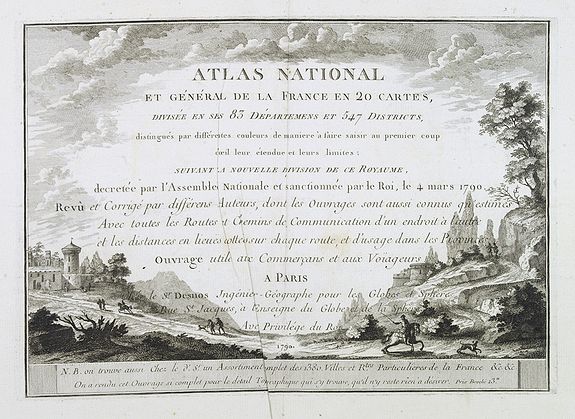 2.
ATLAS NATIONAL
ET GÉNÉRAL DE LA FRANCE EN 20 CARTES,
DIVISÉE EN SES 83 DÉPARTEMENS ET 547 DISTRICTS,
distingués par différentes couleurs de maniere à faire saisir au premier coup
d'œil leur etendue et leurs limites;
SUIVANT A NOUVELLE DIVISION DE CE ROYAUME,
decretée par l'Assemblé Nationale et sanctionnée par le Roi, le 4 mars 1790.
Revû et Corrigé par différens Auteurs, dont les Ouvrages sont aussi connus qu'estimés
Avec toutes les Routes et Chemins de Communication d'un endroit à l'autre
et les distances en lieues cottées sur chaque route, et d'usage dans les Provinces
Ouvrage utile aux Commerçans et aux Voiageurs
A PARIS
Chez le Sr. Desnos Ingénier-Géographe pour les Globes et Sphere
Rue St. Jacques, a l'Enseigne du Globe et de la Sphere
Ave Privilége du Roi
1790.
N.B. on trouve aussi Chez le d. Sr. un Assortiment mplet des 1380. Villes et Rtes Particulieres de la France &c &c
On a rendu cet Ouvrage si complet pour le detail Topographique qui s'y trouve, qu'il n'y reste rien a desirer. Prix Broché 15.tt